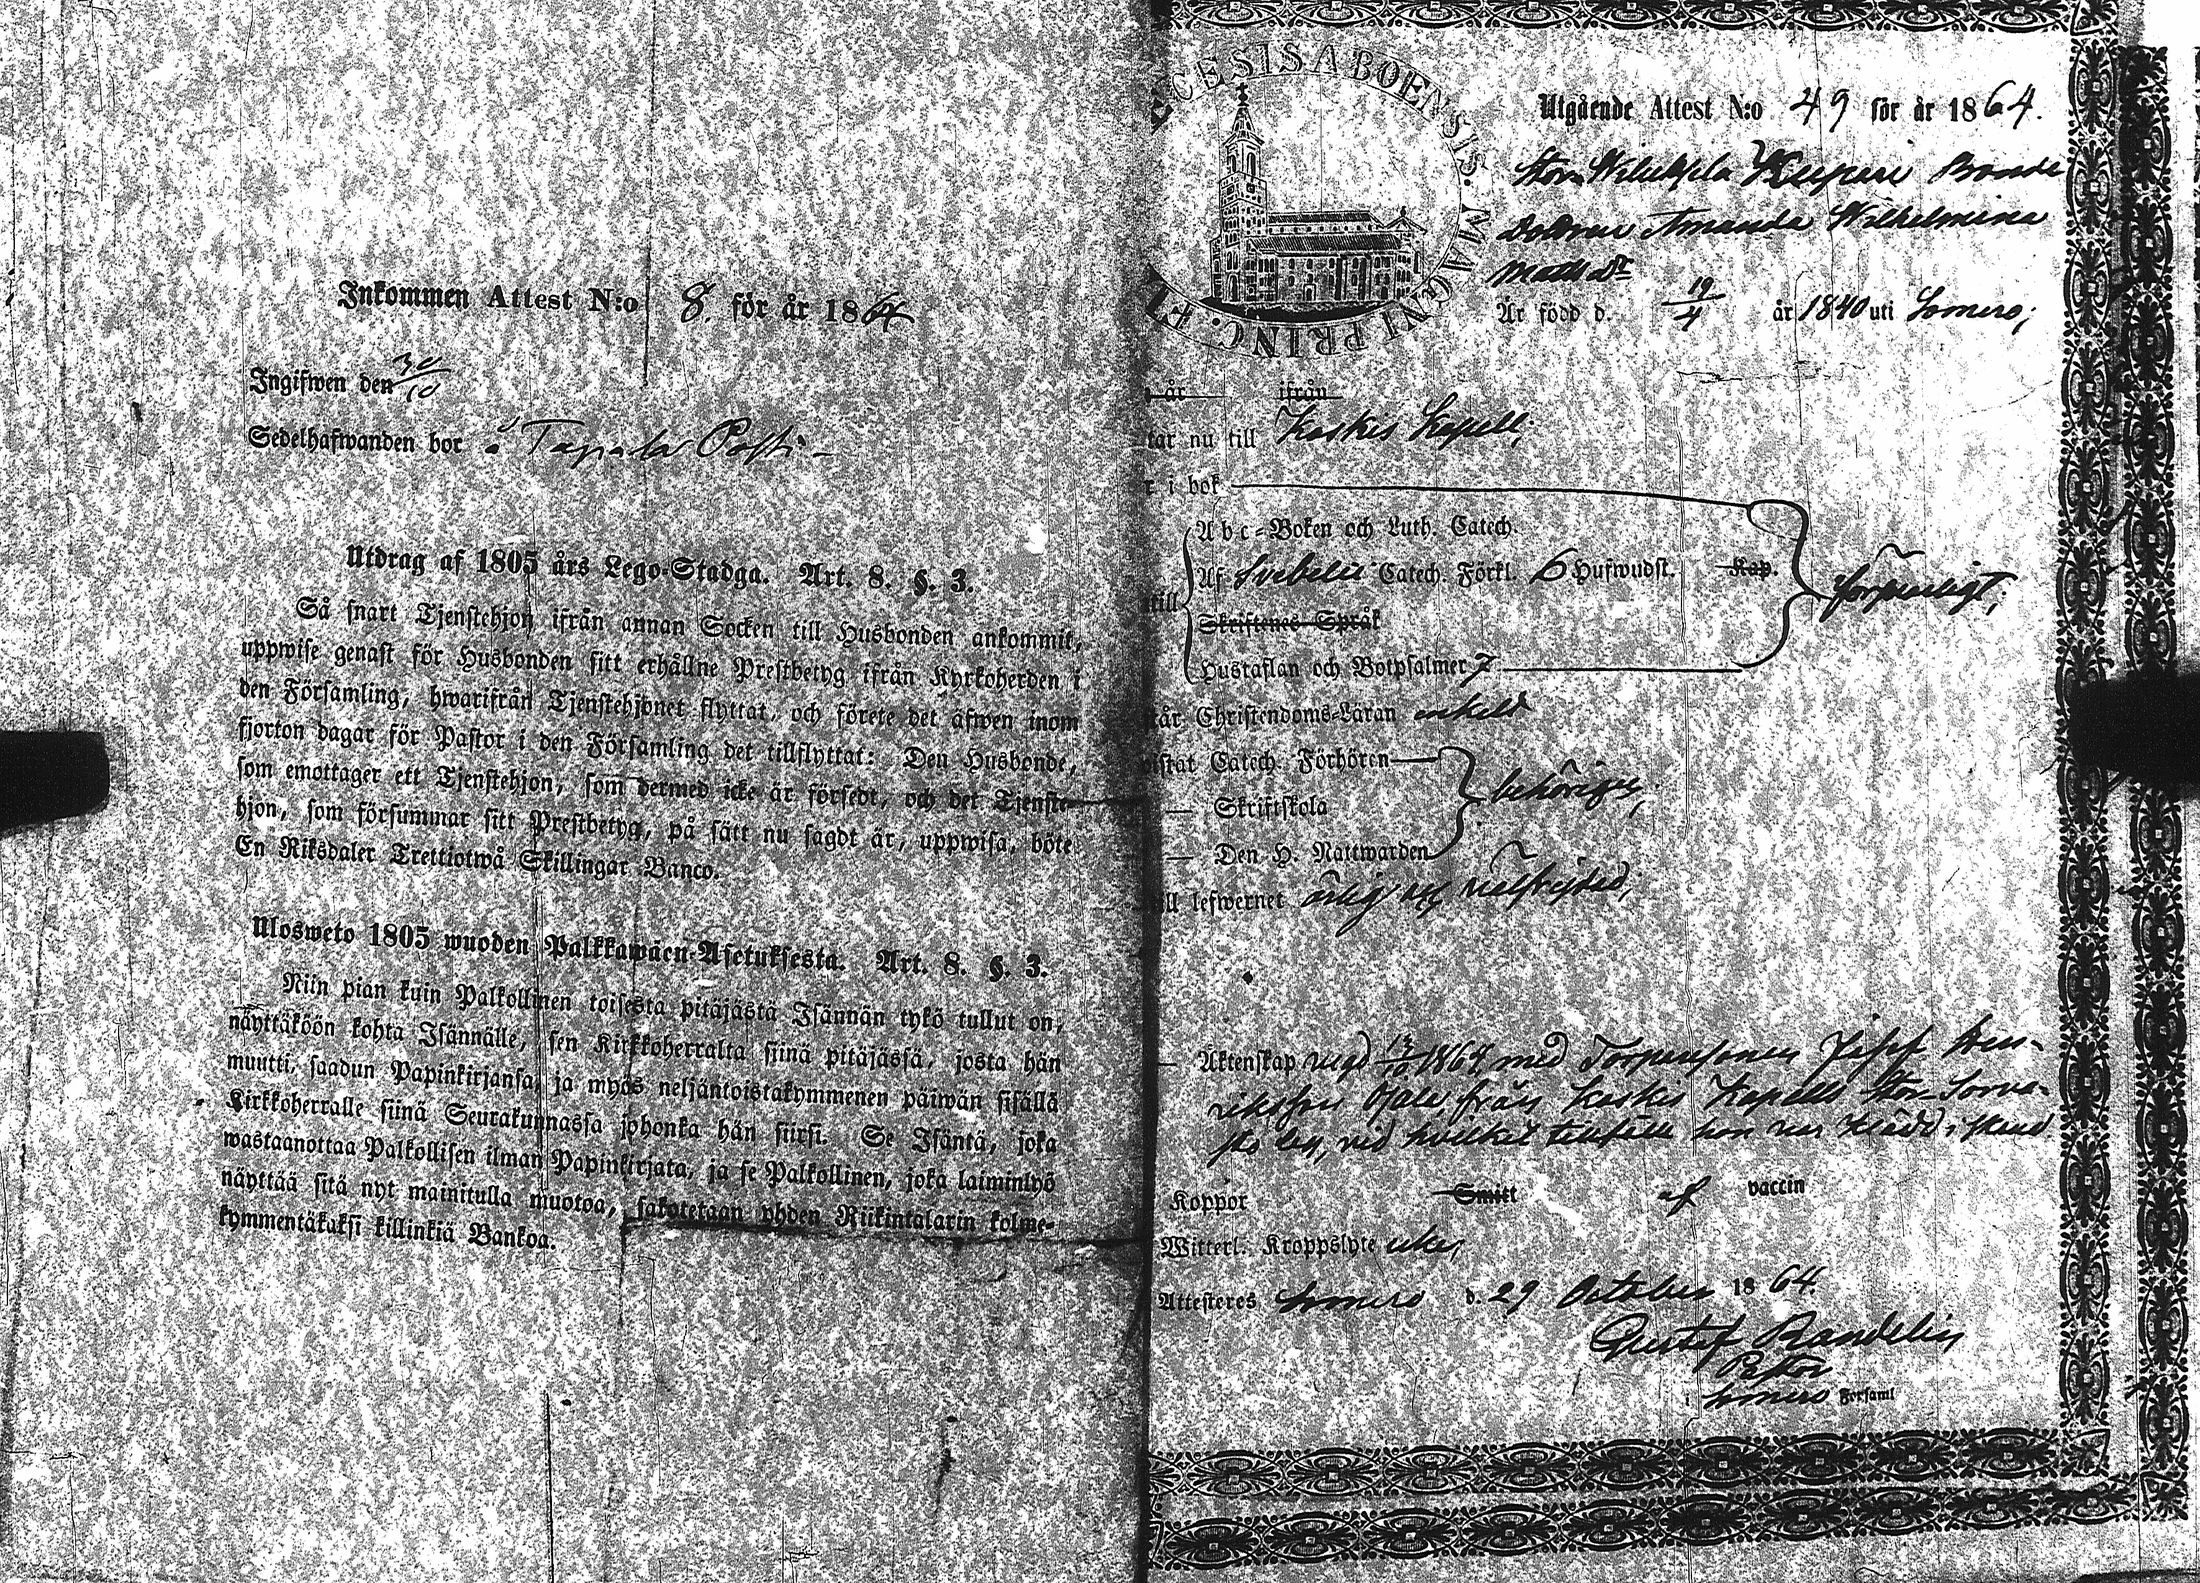 Inkommen Attest N:o 8. för år 1864
Ingifwen den 30/10
Sedelhafwanden bor å Tapala Posti
Utdrag af 1805 års Lego-Stadga. Art. 8. §. 3.
Så snart Tjenstehjon ifrån annan Socken till Husbonden ankommit,
uppwise genast för Husbonden sitt erhållne Prestbetyg ifrån Kyrkoherden i
den Församling, hwarifrån Tjenstehjonet flyttat, och förete det äfwen inom
fjorton dagar för Pastor i den Församling det tillflyttat: Den Husbonde,
som emottager ett Tjenstehjon, som dermed icke är försedt, och det Tjenste-
hjon, som försummar sitt Prestbetyg, på sätt nu sagdt är, uppwisa, böte
En Riksdaler Trettiotwå Skillingar Banco.
Ulosweto 1805 wuoden Palkkawäen-Asetuksesta. Art. 8. §. 3.
Niin pian kuin Palkollinen toisesta pitäjästä Isännän tykö tullut on,
näyttäköön kohta Isännälle, sen Kirkkoherralta siinä pitäjässä, josta hän
muutti, saadun Papinkirjansa, ja myös neljäntoistakymmenen päiwän sisällä
Kirkkoherralle siinä Seurakunnassa johonka hän siirsi. Se Isäntä, joka
wastaanottaa Palkollisen ilman Papinkirjata, ja se Palkollinen, joka laiminlyö
näyttää sitä nyt mainitulla muotoa, sakotetaan yhden Riikintalarin kolme-
kymmentäkaksi killinkiä Bankoa.
CESIS ABOENSIS. MAGNI PRINC. FI
Utgående Attest N:o 49 för år 1864.
Bonde
dottren Amanda Wilhelmina
Mattsdr
Är född d. 19/4 år 1840 uti Somero;
år ifrån
tar nu till Koskis Kapell;
r i bok
A b c-Boken och Luth. Catech.
Af Svebelii Catech. Förkl. 6 Hufwudst. Kap.
till
Skriftenes Språk
Hustaflan och Botpsalmer 7
står Christendoms-Läran enkeld
wistat Catech. Förhören
— Skriftskola behörigen;
— Den H. Nattwarden
ill lefwernet ärlig och välfrejdad;
— Äktenskap vigd 13/10 1864 med Torparesonen Josef Hen-
riksson Ojala från Koskis Kapells Stor-Sorva-
sto by, vid hvilket tillfälle hon var klädd i skrud
Koppor Smitt af vaccin
Witterl. Kroppslyte icke;
Attesteres Somero d. 29 October 1864.
Gustaf Randelin
Pastor
i Somero Forsaml